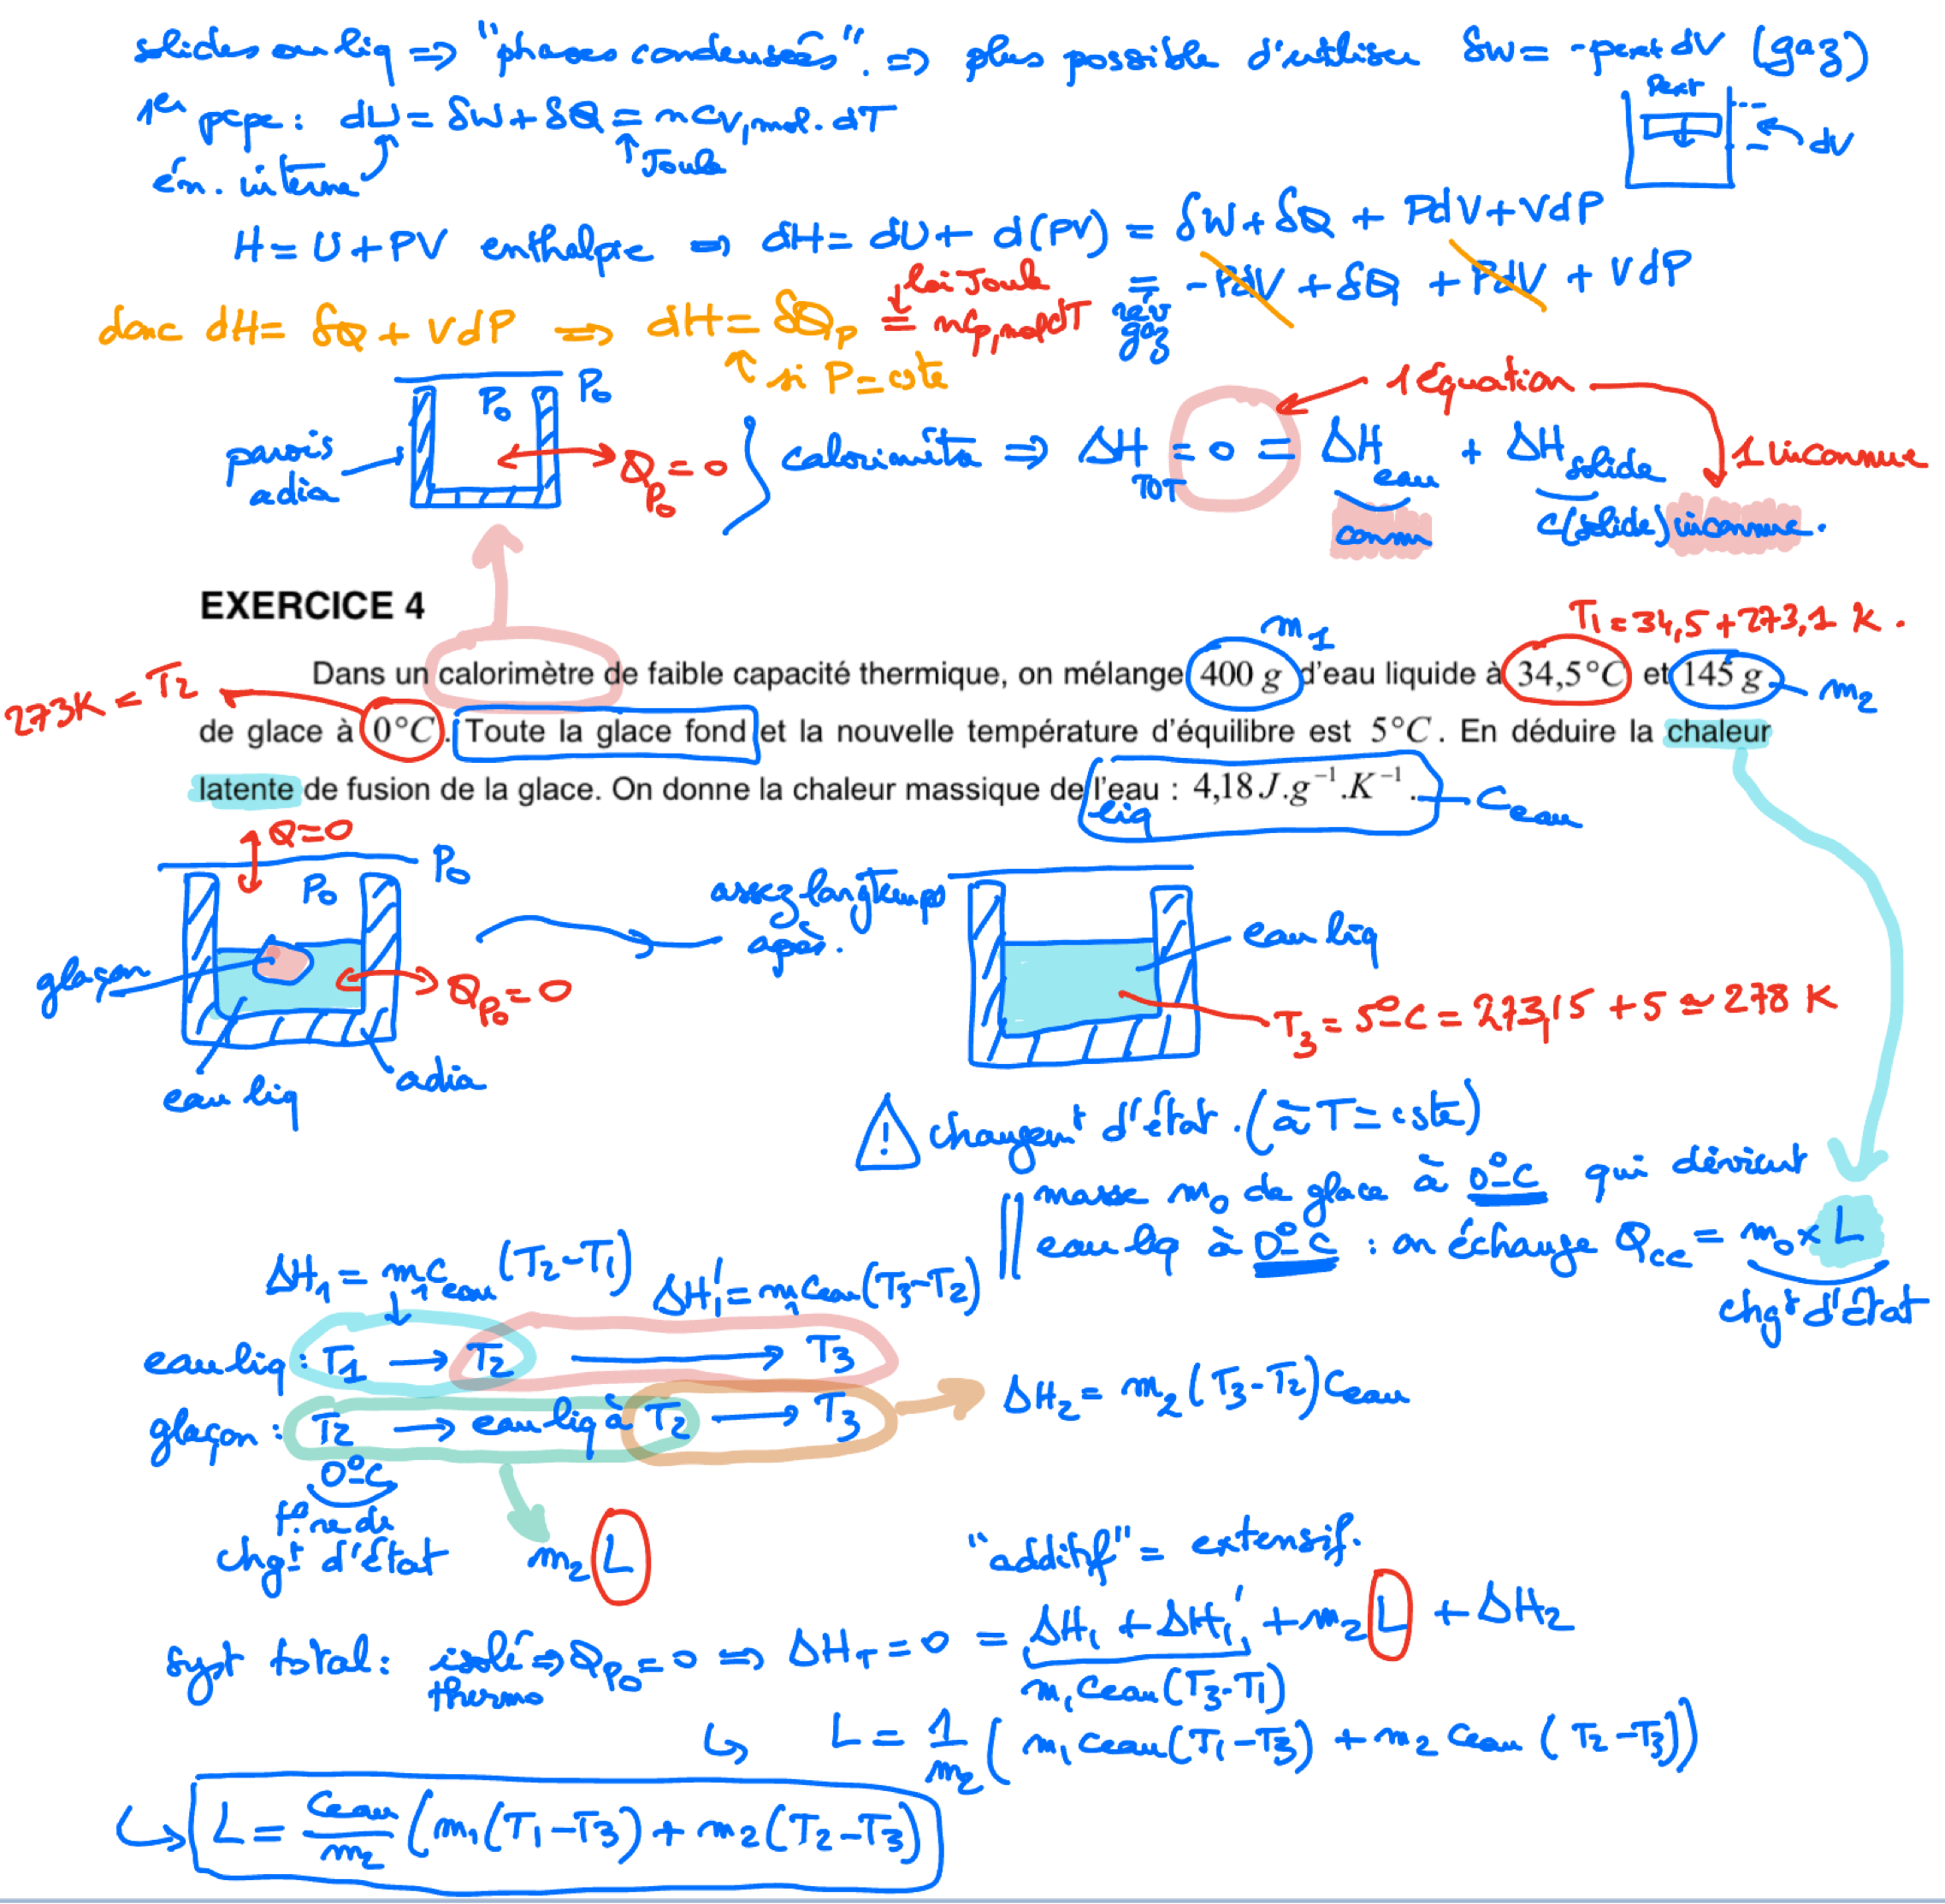 solides ou liq => "phases condensées". => plus possible d'utiliser δW = -pext dV (gaz)
Pext
dV
1er pcpe : dU = δW + δQ = nCv,mol. dT
én. interne
Joule
H = U + PV enthalpie => dH = dU + d(PV) = δW + δQ + PdV + VdP
= -PdV + δQ + PdV + VdP
rév gaz
donc dH = δQ + VdP => dH = δQp = nCp,mol dT
loi Joule
si P = cste
P0 P0
parois adia
Q P0 = 0
calorimètre => ΔH TOT = 0 = ΔH eau + ΔH solide
1 équation
1 inconnue
connu
c(solide) inconnue.
EXERCICE 4
m1
T1 = 34,5 + 273,1 K.
Dans un calorimètre de faible capacité thermique, on mélange 400 g d'eau liquide à 34,5°C et 145 g
m2
273K = T2
de glace à 0°C. Toute la glace fond et la nouvelle température d'équilibre est 5°C. En déduire la chaleur
latente de fusion de la glace. On donne la chaleur massique de l'eau : 4,18 J.g⁻¹.K⁻¹.
liq
Ceau
Q = 0
P0 P0
glaçon
QP0 = 0
eau liq
adia
assez longtemps après.
eau liq
T3 = 5°C = 273,15 + 5 ≃ 278 K
! changemt d'état. (à T = cste)
masse m0 de glace à 0°C qui devient
eau liq à 0°C : on échange Qce = m0 × L
chgt d'état
ΔH1 = m1 ceau (T2-T1)
ΔH1' = m1 ceau (T3-T2)
eau liq : T1 → T2 → T3
glaçon : T2 → eau liq à T2 → T3
ΔH2 = m2 (T3-T2) ceau
0°C
t°re de
chgt d'état
m2 L
"additif" = extensif.
syst total : isolé thermo => QP0 = 0 => ΔHT = 0 = ΔH1 + ΔH1' + m2 L + ΔH2
m1 ceau (T3-T1)
↳ L = 1/m2 (m1 ceau (T1-T3) + m2 ceau (T2-T3))
↳ L = ceau/m2 (m1 (T1-T3) + m2 (T2-T3))